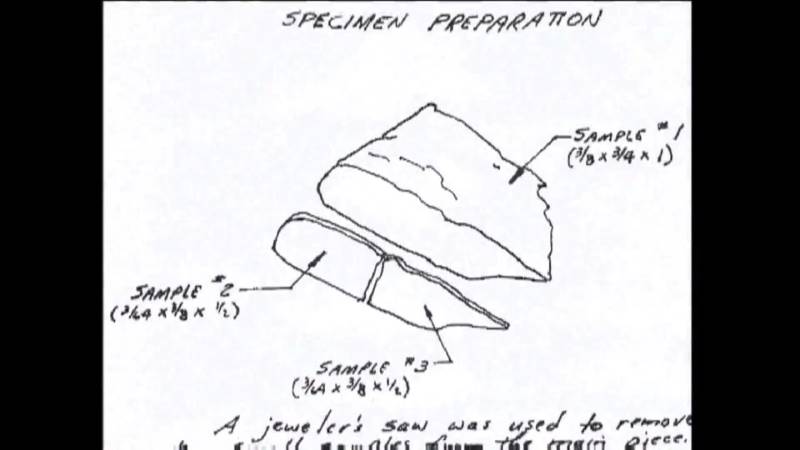 SPECIMEN PREPARATION
SAMPLE #1
(3/8 x 3/4 x 1)
SAMPLE #2
(3/64 x 3/8 x 1/2)
SAMPLE #3
(3/64 x 3/8 x 1/2)
A jeweler's saw was used to remove
small samples from the main piece.